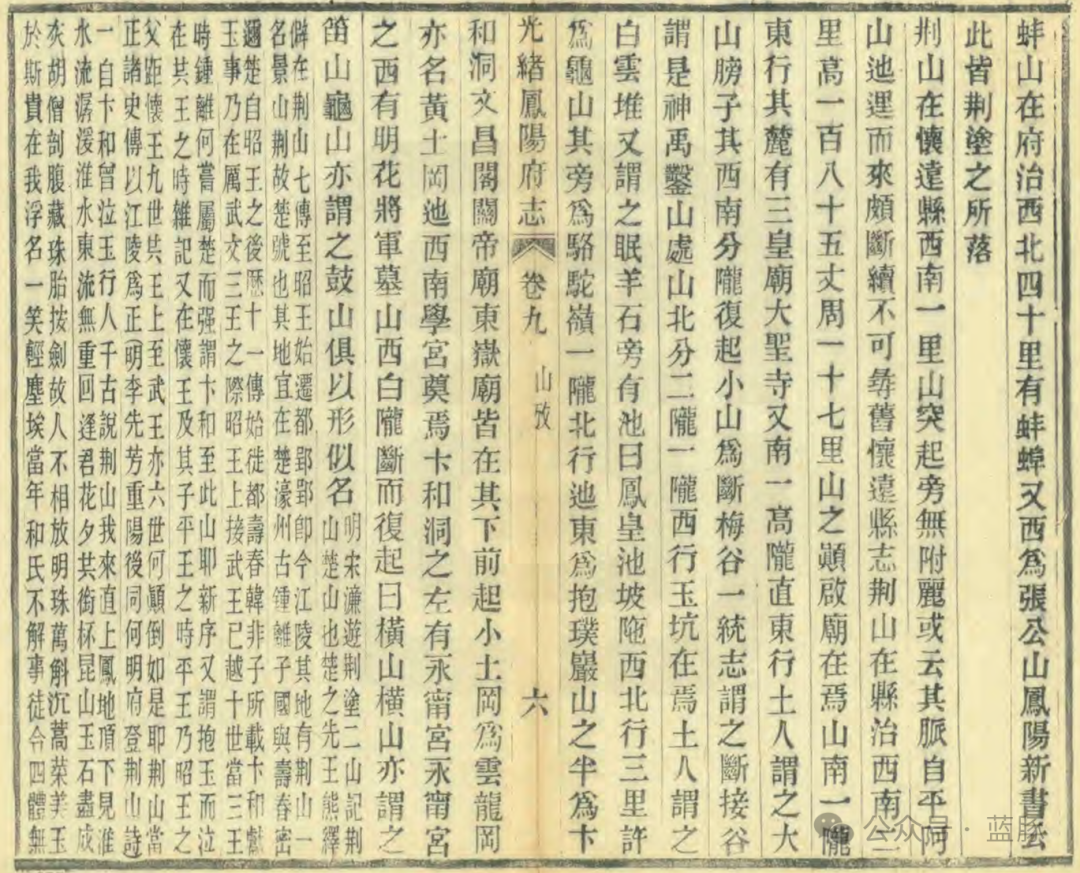 蚌山在府治西北四十里有蚌蜯又西爲張公山鳳陽新書云
此皆荆塗之所落
荆山在懷遠縣西南一里山突起旁無附麗或云其脈自平阿
山迤𨓦而來頗斷續不可尋舊懷遠縣志荆山在縣治西南二
里高一百八十五丈周一十七里山之顚啟廟在焉山南一隴
東行其麓有三皇廟大聖寺又南一高隴直東行土人謂之大
山膀子其西南分隴復起小山爲斷梅谷一統志謂之斷接谷
謂是神禹鑿山處山北分二隴一隴西行玉坑在焉土人謂之
白雲堆又謂之眠羊石旁有池曰鳳皇池坡陁西北行三里許
爲龜山其旁爲駱駝嶺一隴北行迤東爲抱璞巖山之半爲卞
光緒鳳陽府志 卷九 山攷 六
和洞文昌閣關帝廟東嶽廟皆在其下前起小土岡爲雲龍岡
亦名黃土岡迤西南學宮奠焉卞和洞之左有永甯宮永甯宮
之西有明花將軍墓山西白隴斷而復起曰橫山橫山亦謂之
笛山龜山亦謂之鼓山俱以形似名
明宋濂遊荆塗二山記荆
山楚山也楚之先王熊繹
僻在荆山七傳至昭王始遷都郢郢卽今江陵其地有荆山一
名景山荆故楚號也其地宜在楚濠州古鍾離子國與壽春密
邇楚自昭王之後歷十一傳始徙都壽春韓非子所載卞和獻
玉事乃在厲武文三王之際昭王上接武王已越十世當三王
時鍾離何嘗屬楚而强謂卞和至此山耶新序又謂抱玉而泣
在共王之時雜記又在懷王及其子平王之時平王乃昭王之
父距懷王九世共王上至武王亦六世何顚倒如是耶荆山當
正諸史傳以江陵爲正明李先芳重陽後同何明府登荆山詩
一自卞和曾泣玉行人千古說荆山我來直上鳳地頂下見淮
水流潺湲淮水東流無重回逢君花夕共銜杯昆山玉石盡成
灰胡僧剖腹藏珠胎按劍故人不相放明珠萬斛沉蒿萊美玉
於斯貴在我浮名一笑輕塵埃當年和氏不解事徒令四體無
公众号·蓝豚